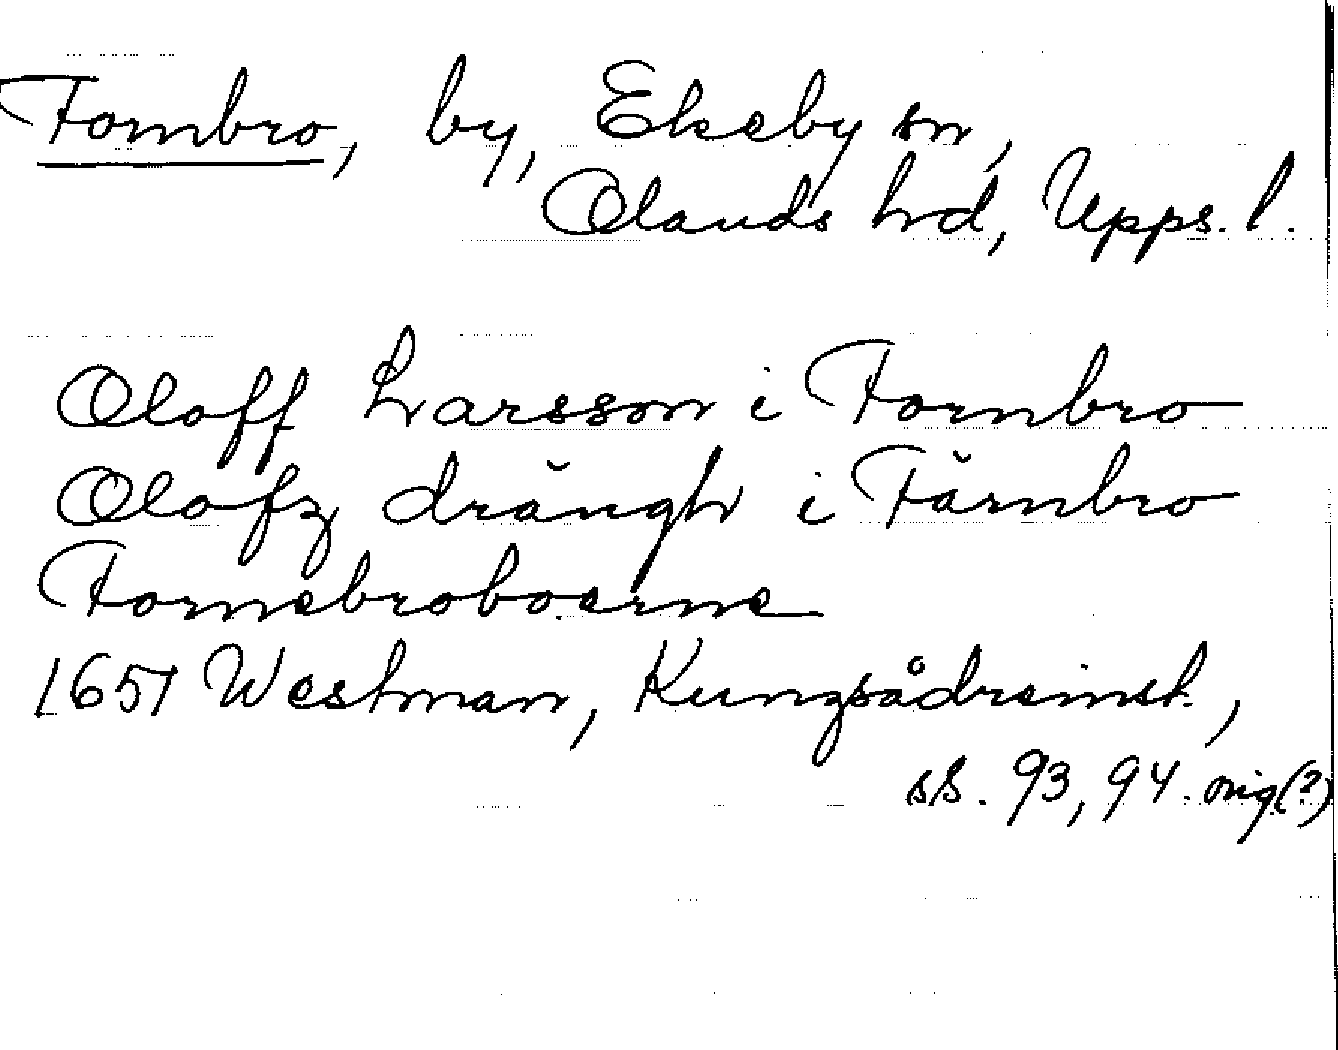 Fornbro, by, Ekeby sn,
Olands hd, Upps. l.
Oloff Larsson i Fornbro
Olofz drängh i Fårnbro
Fornebroboerne
1651 Westman, Kungsådreinst.,
ss. 93, 94. orig(?)